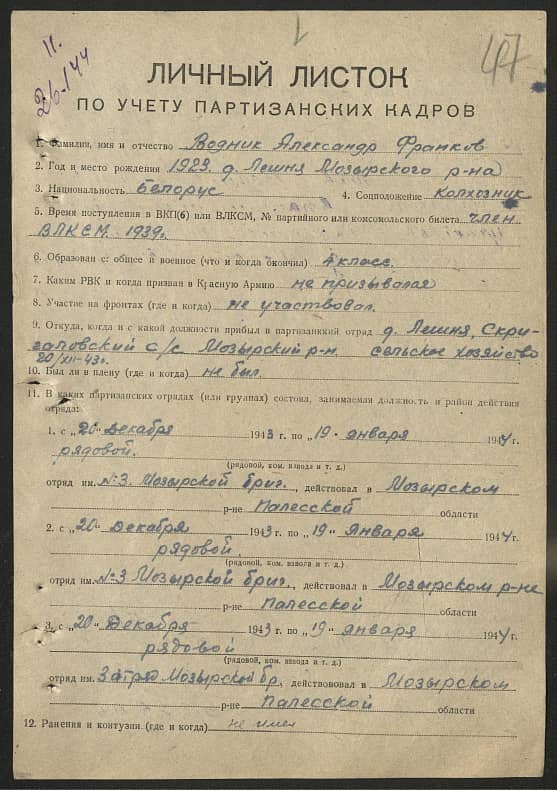 11.
26-I 44
47
ЛИЧНЫЙ ЛИСТОК
ПО УЧЕТУ ПАРТИЗАНСКИХ КАДРОВ
1. Фамилия, имя и отчество Водник Александр Франков
2. Год и место рождения 1923. д. Лешня Мозырского р-на
3. Национальность белорус 4. Соцположение колхозник
5. Время поступления в ВКП(б) или ВЛКСМ, № партийного или комсомольского билета член
ВЛКСМ. 1939г.
6. Образован с: общее и военное (что и когда окончил) 4 класс.
7. Каким РВК и когда призван в Красную Армию не призывался
8. Участие на фронтах (где и когда) не участвовал.
9. Откуда, когда и с какой должности прибыл в партизанский отряд д. Лешня, Скри-
галовский с/с Мозырский р-н. сельское хозяйство
20/XII-43г.
10. Был ли в плену (где и когда) не был.
11. В каких партизанских отрядах (или группах) состоял, занимаемая должность и район действия
отряда:
1. с „20" Декабря 1943 г. по „19" января 1944 г.
рядовой.
(рядовой, ком. взвода и т. д.)
отряд им. №3. Мозырской бриг., действовал в Мозырском
р-не Палесской области
2. с „20" Декабря 1943 г. по „19" Января 1944 г.
рядовой.
(рядовой, ком. взвода и т. д.)
отряд им. №3 Мозырской бриг., действовал в Мозырском р-не
р-не Палесской области
3. с „20" Декабря 1943 г. по „19" января 1944 г.
рядовой
(рядовой, ком. взвода и т. д.)
отряд им. 3 отряд Мозырской бр, действововал в Мозырском
р-не Палесской области
12. Ранения и контузии (где и когда) не имел